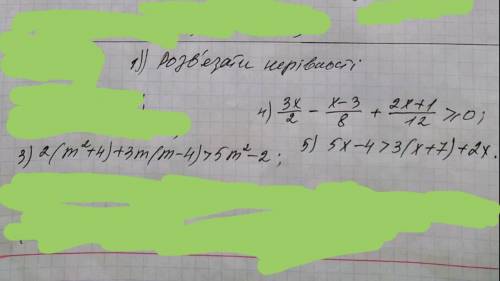 1) Розв'язати нерівності
4) 3x/2 - x-3/8 + 2x+1/12 ≥ 0;
3) 2(m²+4)+3m(m-4)>5m²-2; 5) 5x-4>3(x+7)+2x.